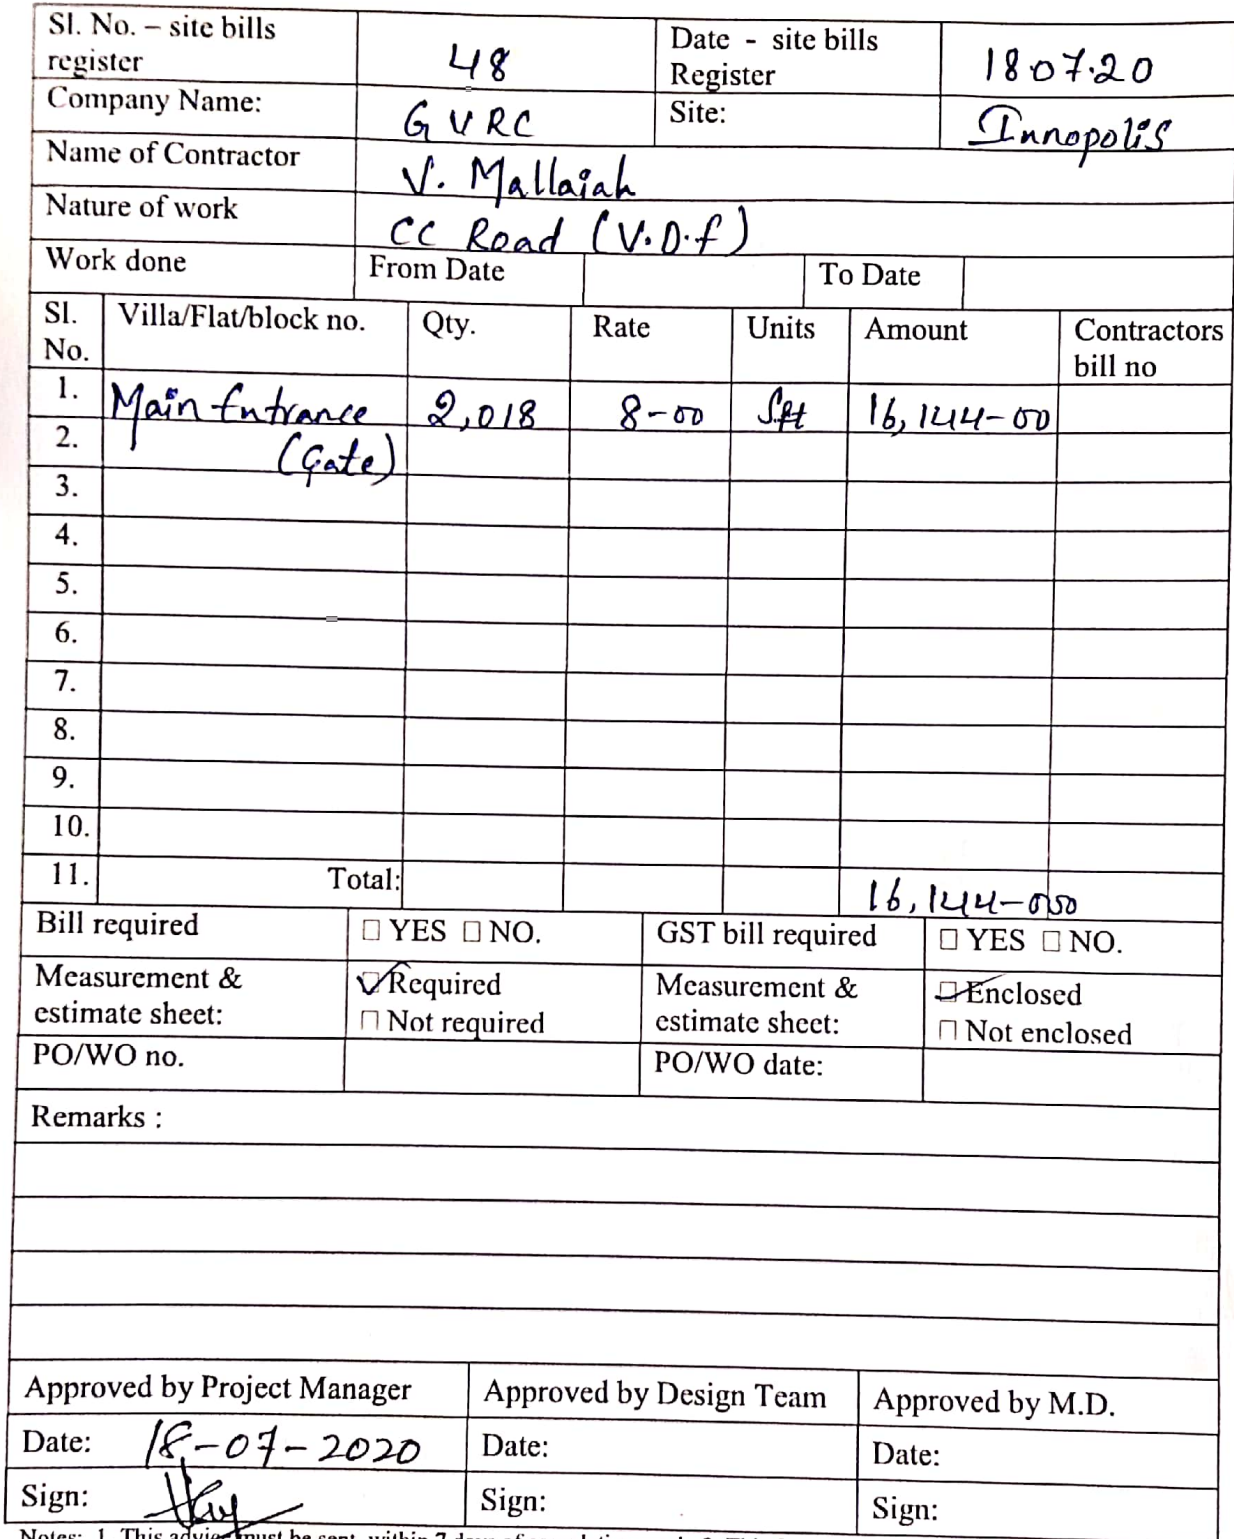 Sl. No. – site bills register 48 Date - site bills Register 18.07.20
Company Name: GVRC Site: Innopolis
Name of Contractor V. Mallaiah
Nature of work CC Road (V.D.f)
Work done From Date To Date
Sl. No. Villa/Flat/block no. Qty. Rate Units Amount Contractors bill no
1. Main Entrance 2,018 8-00 Sft 16,144-00
2. (Gate)
3.
4.
5.
6.
7.
8.
9.
10.
11. Total: 16,144-00
Bill required ☐ YES ☐ NO. GST bill required ☐ YES ☐ NO.
Measurement & estimate sheet: ☑ Required ☐ Not required Measurement & estimate sheet: ☑ Enclosed ☐ Not enclosed
PO/WO no. PO/WO date:
Remarks :
Approved by Project Manager Approved by Design Team Approved by M.D.
Date: 18-07-2020 Date: Date:
Sign: Sign: Sign:
Notes: 1. This advice must be sent within 7 days of